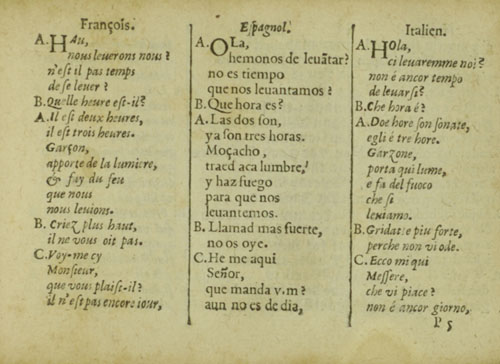 François.
A. HAu,
nous leuerons nous?
n'eſt il pas temps
de ſe leuer?
B. Quelle heure eſt-il?
A. Il eſt deux heures,
il eſt trois heures.
Garſon,
apporte de la lumiere,
& fay du feu
que nous
nous leuions.
B. Criez plus haut,
il ne vous oit pas.
C. Voy-me cy
Monſieur,
que vous plaiſt-il?
il n'eſt pas encore iour,
Eſpagnol.
A. OLa,
hemonos de leuãtar?
no es tiempo
que nos leuantamos?
B. Que hora es?
A. Las dos ſon,
ya ſon tres horas.
Moçacho,
traed aca lumbre,
y haz fuego
para que nos
leuantemos.
B. Llamad mas fuerte,
no os oye.
C. He me aqui
Señor,
que manda v.m?
aun no es de dia,
Italien.
A. HOla,
ci leuaremme noi?
non è ancor tempo
de leuarſi?
B. Che hora è?
A. Doe hore ſon ſonate,
egli è tre hore.
Garzone,
porta qui lume,
e fa del fuoco
che ſi
leuiamo.
B. Gridate piu forte,
perche non vi ode.
C. Ecco mi qui
Meſſere,
che vi piace?
non è ancor giorno,
P 5